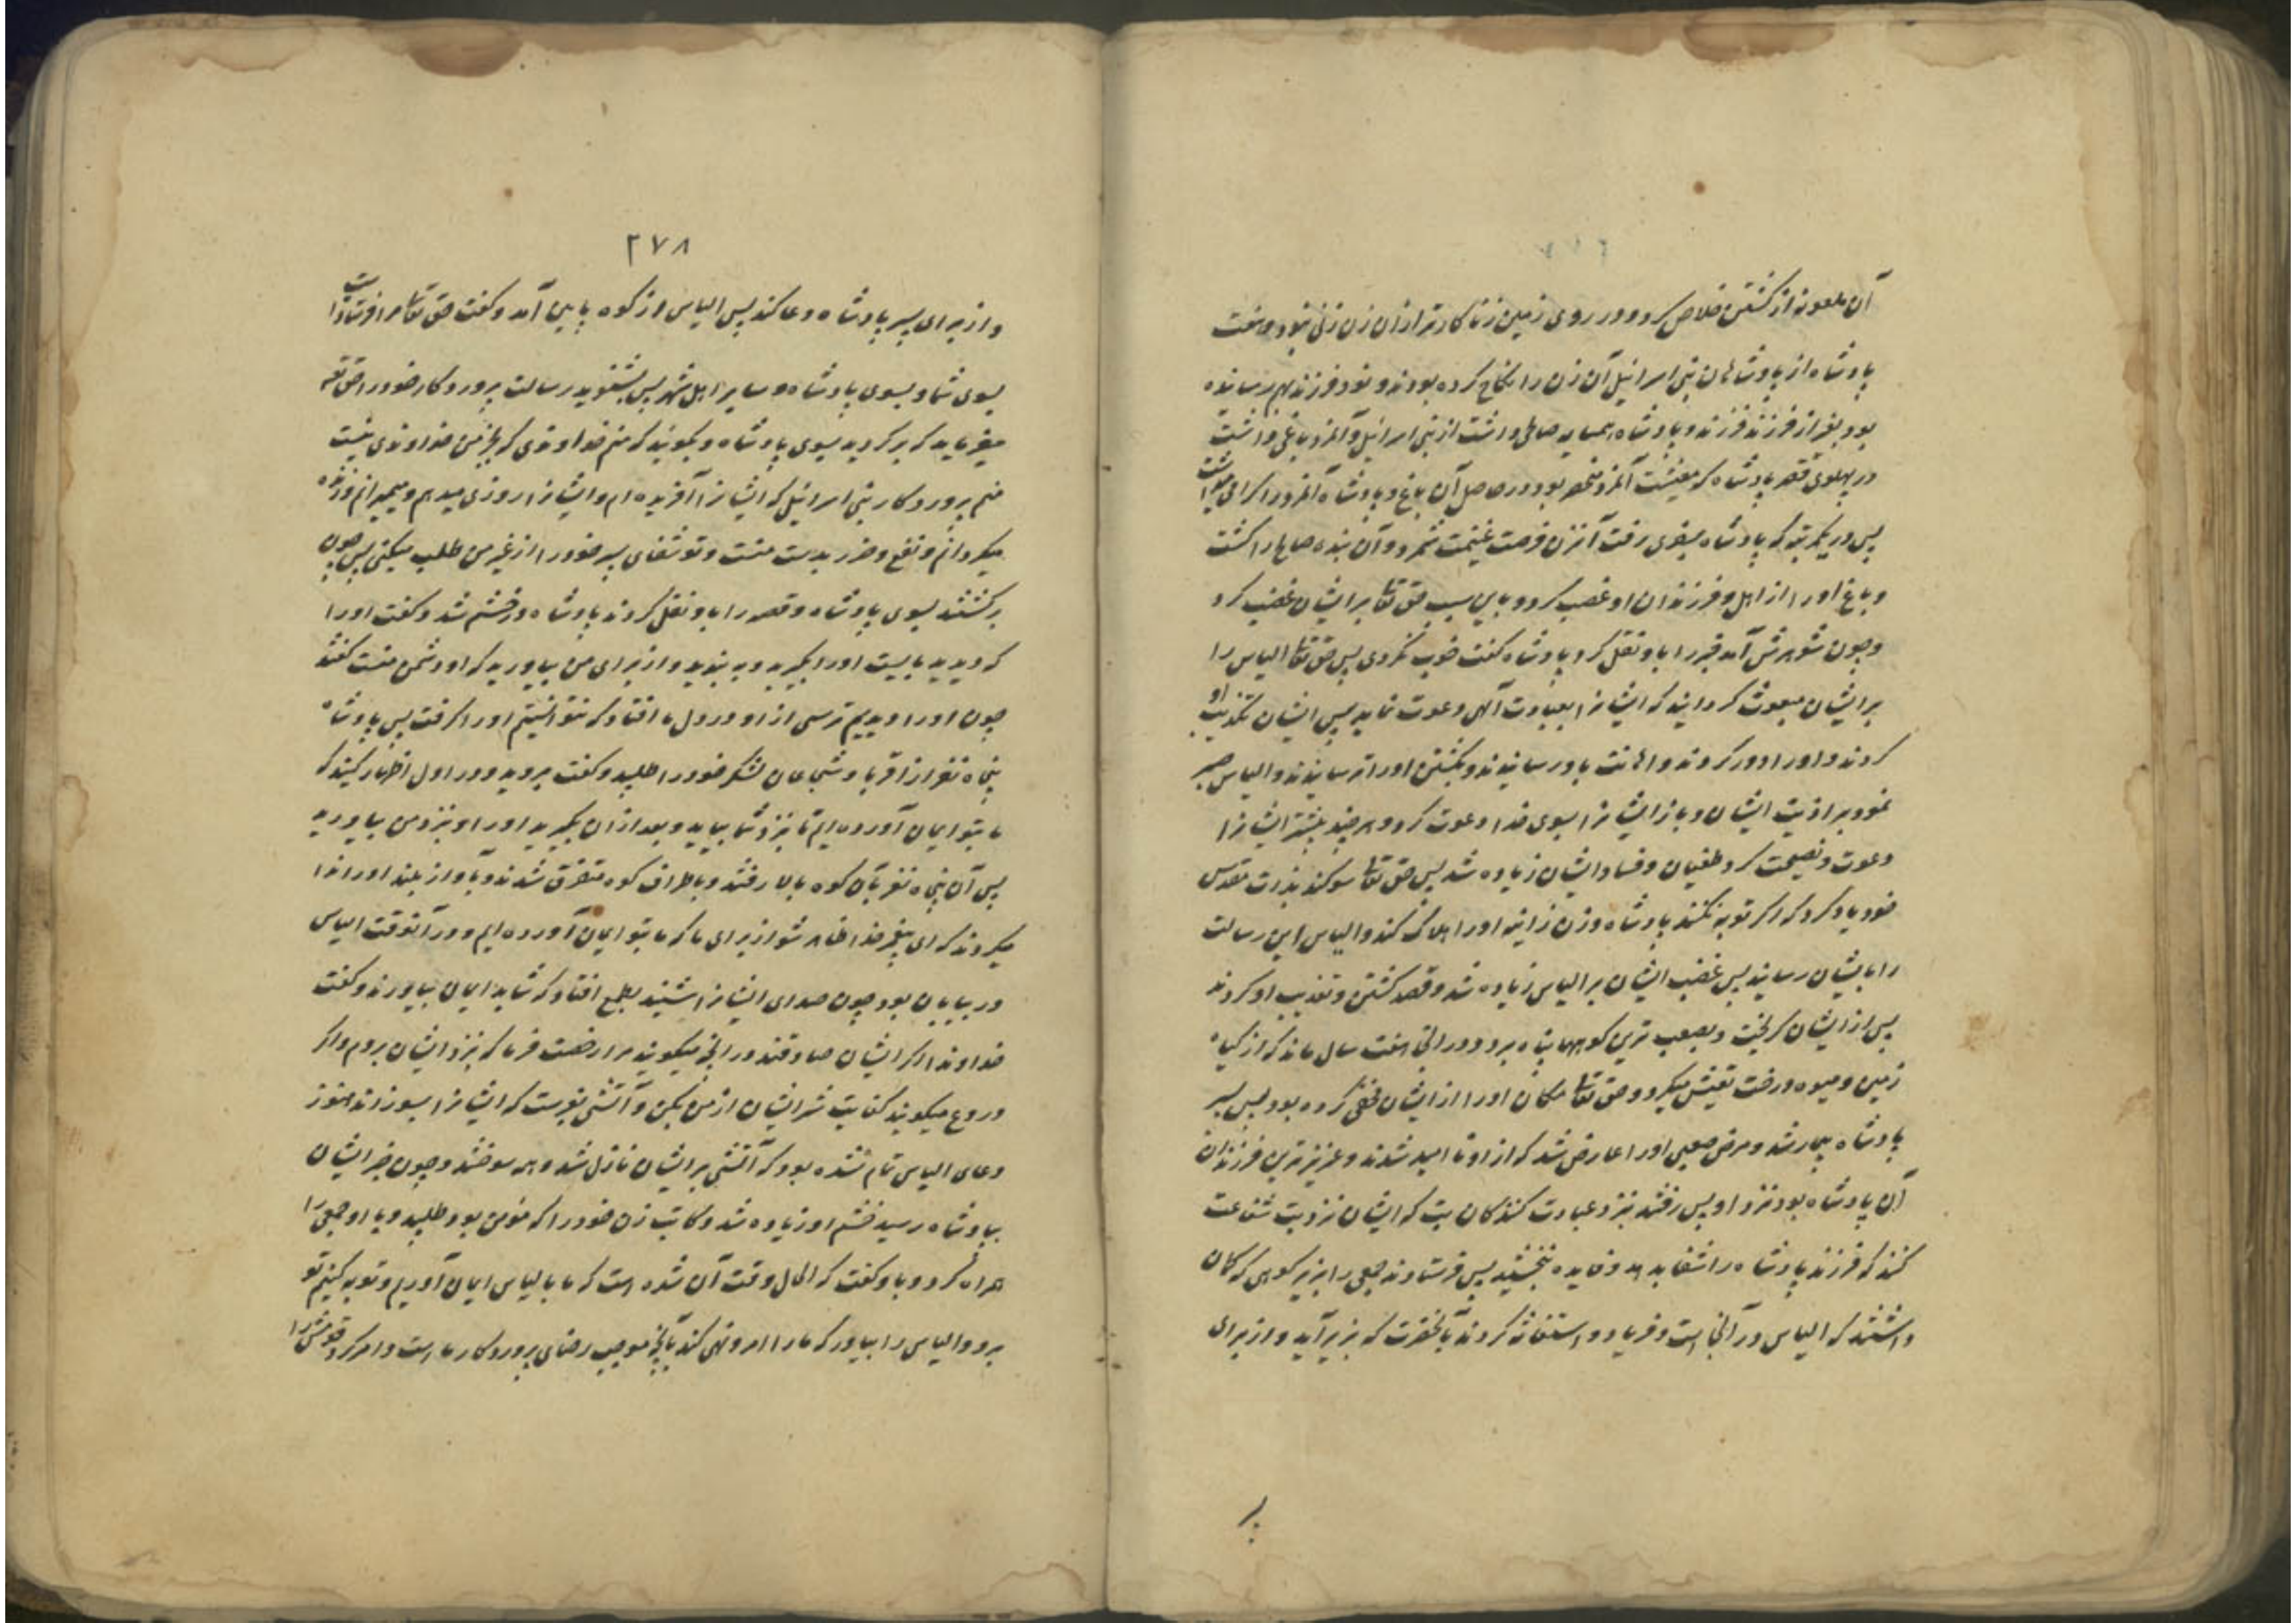 آن ملعونه از کشتن خلاص کرد و در روی زمین زناکارتر از آن زن زنی نبود و هفت
پادشاه از پادشاهان بنی اسرائیل آن زن را نکاح کرده بودند و نود فرزند بهم رسانده
بود بغیر از فرزند فرزند و پادشاه همسایه صالحی داشت از بنی اسرائیل و آنمرد باغی داشت
در پهلوی قصر پادشاه که معیشت آنمرد منحصر بود در حاصل آن باغ و پادشاه آنمرد را گرامی میداشت
پس در یکمرتبه که پادشاه بسفری رفت آنزن فرصت غنیمت شمرد و آن بنده صالح را کشت
و باغ او را از اهل و فرزندان او غصب کرد و باین سبب حق تعا بر ایشان غضب کرد
و چون شوهرش آمد خبر را باو نقل کرد پادشاه گفت خوب نکردی پس حق تعا الیاس را
بر ایشان مبعوث گردانید که ایشانرا بعبادت الهی دعوت نماید پس ایشان تکذیب او
کردند و او را دور کردند و اهانت باو رسانیدند و بکشتن او را ترسانیدند و الیاس صبر
نمود بر اذیت ایشان و باز ایشانرا بسوی خدا دعوت کرد و هر چند بیشتر ایشانرا
دعوت و نصیحت کرد طغیان و فساد ایشان زیاده شد پس حق تعا سوگند بذات مقدس
خود یاد کرد که اگر توبه نکنند پادشاه و زن زانیه او را هلاک کند و الیاس این رسالت
را بایشان رسانید پس غضب ایشان بر الیاس زیاده شد و قصد کشتن و تعذیب او کردند
پس از ایشان گریخت و بصعب ترین کوهها پناه برد و در آنجا هفت سال ماند که از گیاه
زمین و میوه درخت تعیش میکرد و حق تعا مکان او را از ایشان مخفی کرده بود پس پسر
پادشاه بیمار شد و مرض صعبی او را عارض شد که از او نا امید شدند و عزیزترین فرزندان
آن پادشاه بود نزد او پس رفتند بنزد عبادت کنندگان بت که ایشان نزد بت شفاعت
کنند که فرزند پادشاه را شفا بدهد و فایده نبخشید پس فرستادند جمعی را بزیر کوهی که گمان
داشتند که الیاس در آنجا است و فریاد و استغاثه کردند بآنحضرت که بزیر آید و از برای
بر
۲۷۸
و از برای پسر پادشاه دعا کند پس الیاس از کوه پایین آمد و گفت حق تعا مرا فرستاده است
بسوی شما و بسوی پادشاه و سایر اهل شهر پس بشنوید رسالت پروردگار خود را حق تعه
میفرماید که برگردید بسوی پادشاه و بگویند که منم خداوندی که بجز من خداوندی نیست
منم پروردگار بنی اسرائیل که ایشانرا آفریده ام و ایشانرا روزی میدهم و میمیرانم و زنده
میگردانم و نفع و ضرر بدست منست و تو شفای پسر خود را از غیر من طلب میکنی پس چون
برگشتند بسوی پادشاه و قصه را باو نقل کردند پادشاه در خشم شد و گفت او را
که دیدید بایست او را بگیرید و به بندید و از برای من بیاورید که او دشمن منست گفتند
چون او را دیدیم ترسی از او در دل ما افتاد که نتوانستیم او را گرفت پس پادشاه
پنجاه نفر از اقربا و شجاعان لشکر خود را طلبید و گفت بروید و در اول اظهار کنید که
ما بتو ایمان آورده ایم تا بنزد شما بیاید و بعد از آن بگیرید او را و نزد من بیاورید
پس آن پنجاه نفر بآن کوه بالا رفتند و باطراف کوه متفرق شدند و بآواز بلند او را ندا
میکردند که ای پیغمبر خدا ظاهر شو از برای ما که ما بتو ایمان آورده ایم و در آنوقت الیاس
در بیابان بود چون صدای ایشانرا شنید بطمع افتاد که شاید ایمان بیاورند و گفت
خداوندا اگر ایشان صادقند در آنچه میگویند مرا رخصت فرما که بنزد ایشان بروم و اگر
دروغ میگویند کفایت شر ایشان از من بکن و آتشی بفرست که ایشانرا بسوزاند هنوز
دعای الیاس تمام نشده بود که آتشی بر ایشان نازل شد و همه سوختند و چون خبر ایشان
بپادشاه رسید خشم او زیاده شد و کاتب زن خود را که مؤمن بود طلبید و با او جمعی را
همراه کرد و باو گفت که الحال وقت آن شده است که ما بالیاس ایمان آوریم و توبه کنیم تو
برو و الیاس را بیاور که ما را امر و نهی کند بآنچه موجب رضای پروردگار ما است و امر کرد قومش را